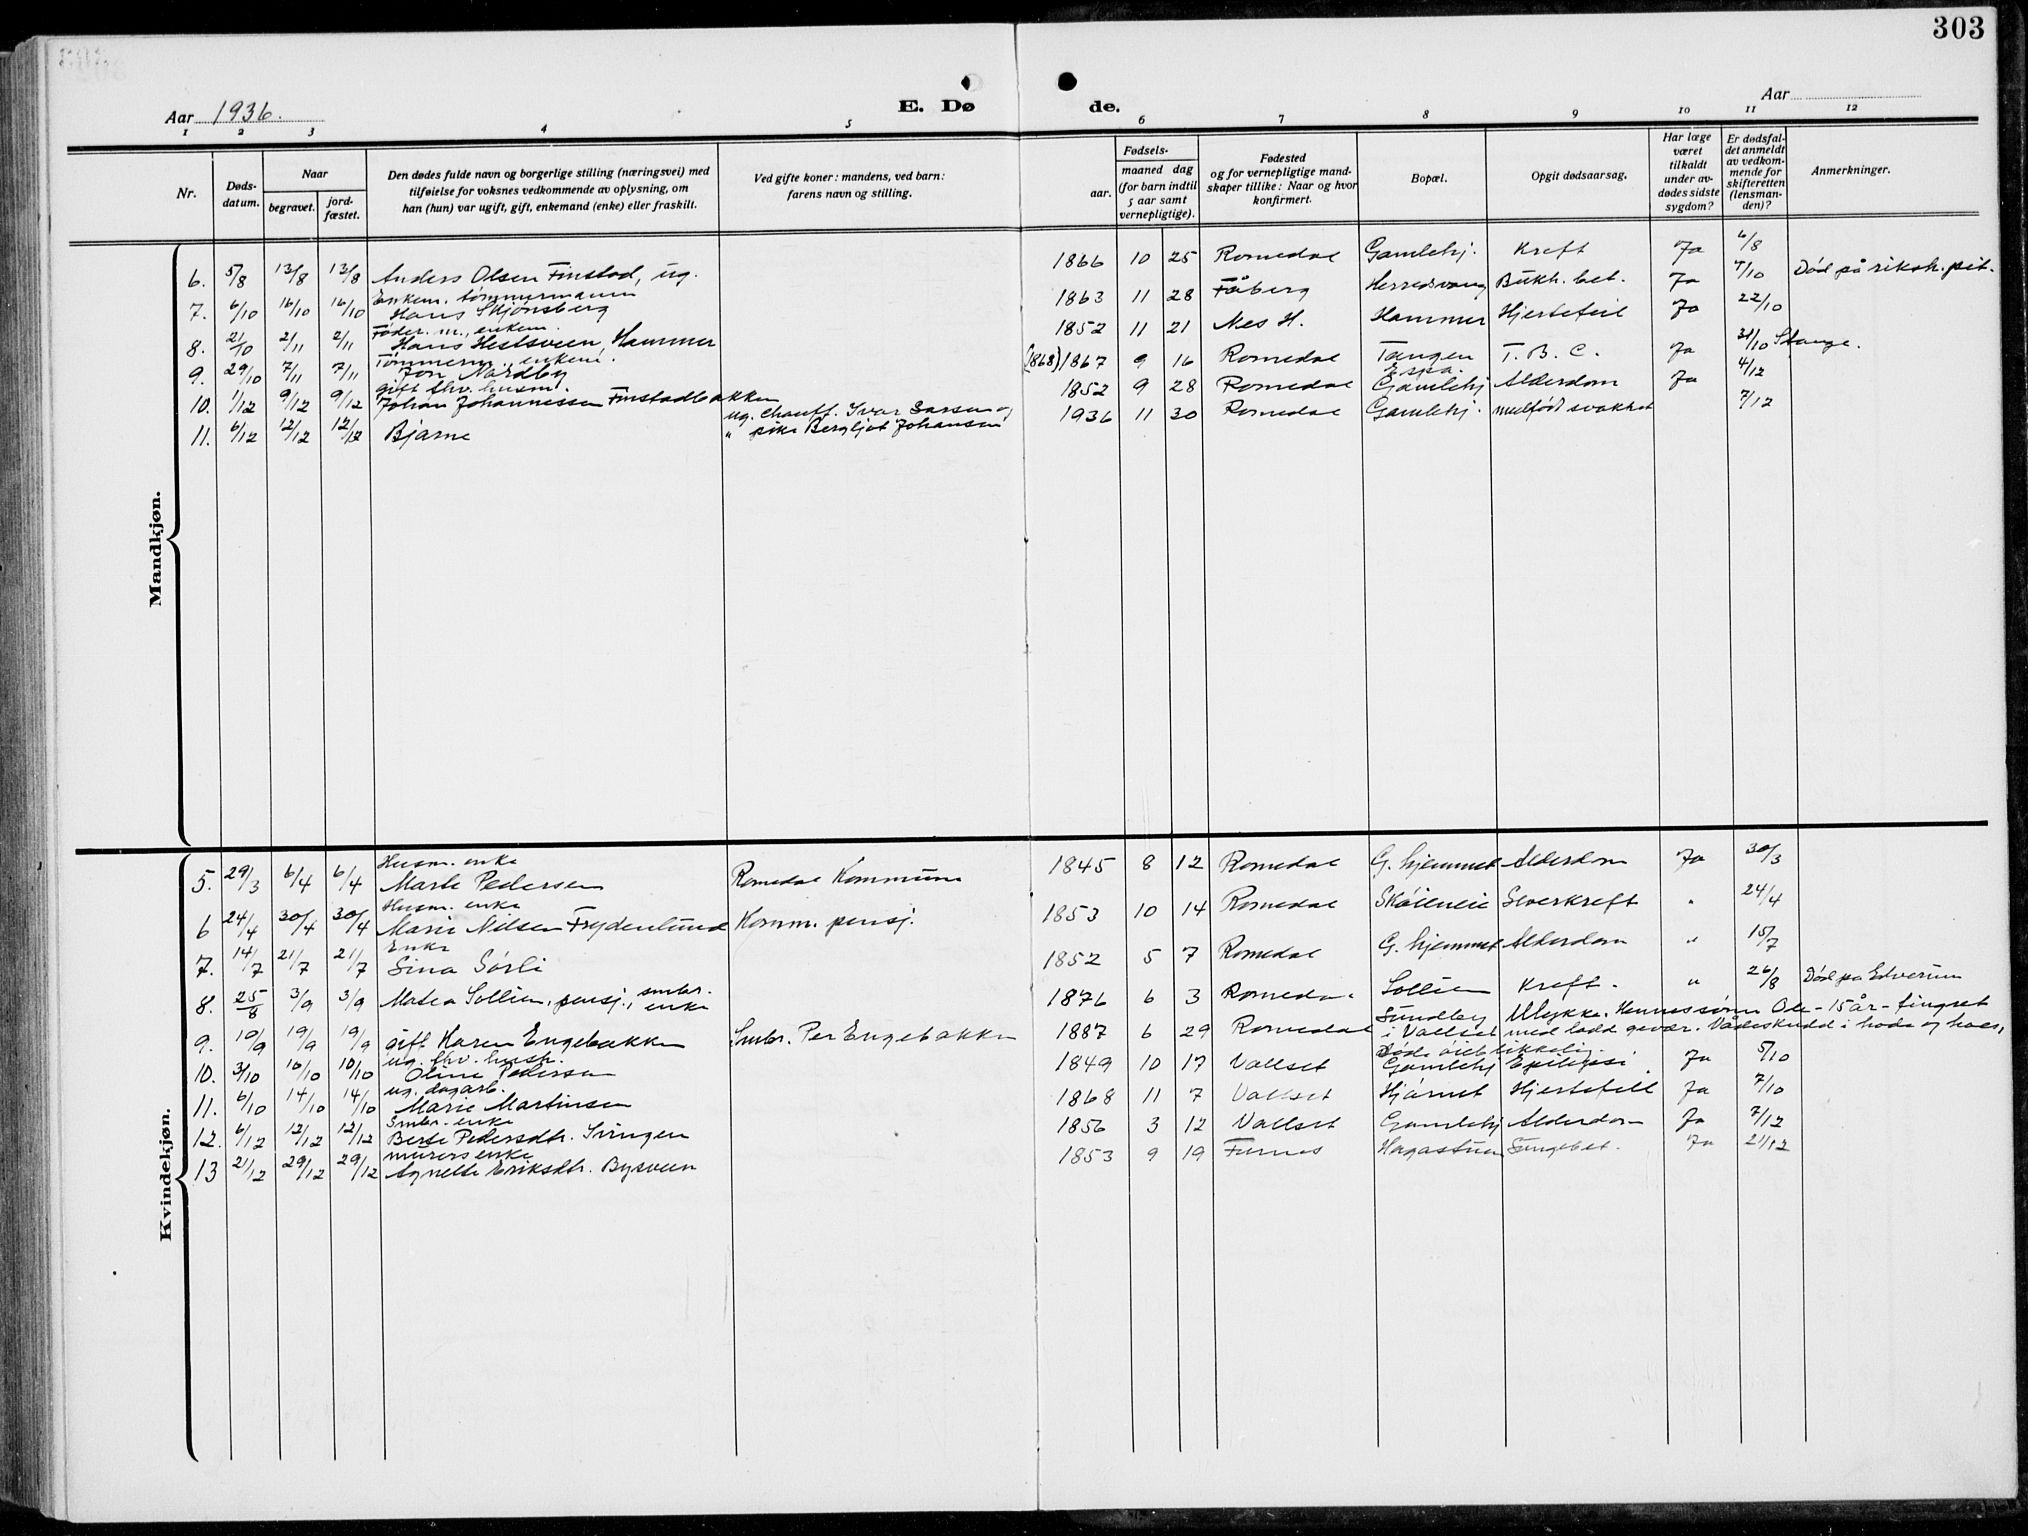 303
Aar 1936.
E. Dø de.
Aar
1 2 3 4 5 6 7 8 9 10 11 12
Nr. Døds-datum. Naar begravet. jord-fæstet. Den dødes fulde navn og borgerlige stilling (næringsvei) med tilføielse for voksnes vedkommende av oplysning, om han (hun) var ugift, gift, enkemand (enke) eller fraskilt. Ved gifte koner: mandens, ved barn: farens navn og stilling. Fødsels- aar. maaned dag (for barn indtil 5 aar samt vernepligtige). Fødested og for vernepligtige mandskaper tillike: Naar og hvor konfirmert. Bopæl. Opgit dødsaarsag. Har læge været tilkaldt under avdødes sidste sygdom? Er dødsfaldet anmeldt av vedkommende for skifteretten (lensmanden)? Anmerkninger.
Mandkjøn.
6. 5/8 13/8 13/8 Anders Olsen Finstad, ug. 1866 10 25 Romedal Gamlehj. Kreft Ja 6/8
Enkem. tømmermann
7. 6/10 16/10 16/10 Hans Skjønsberg 1863 11 28 Fåberg Herredsvang Bukh. bet. Ja 7/10 Død på riksh.pit.
Føder. m., enkem.
8. 21/10 2/11 2/11 Hans Hestsveen, Hammer 1852 11 21 Nes H. Hammer Hjertefeil Ja 22/10
Tømmerm., enkem.
9. 29/10 7/11 7/11 Jon Nordby (1868) 1867 9 16 Romedal Tangen Espa. T. B. C. Ja 31/10 Stange.
gift fhv. husm.
10. 1/12 9/12 9/12 Johan Johannessen Finstadbakken 1852 9 28 Romedal Gamlehj Alderdom Ja 4/12
11. 6/12 12/12 12/12 Bjarne ug. chauff. Ivar Larsen og " pike Bergljot Johansen 1936 11 30 Romedal Gamlehj. medfødt svakhet 7/12
Kvindekjøn.
Husm. enke
5. 29/3 6/4 6/4 Marte Pedersen Romedal Kommune 1845 8 12 Romedal G. hjemmet Alderdom Ja 30/3
Husm. enke
6 24/4 30/4 30/4 Marie Nilsen Frydenlund Komm. pensj. 1853 10 14 Romedal Leverkreft " 24/4
Enke
7. 14/7 21/7 21/7 Sina Sørli 1852 5 7 Romedal G. hjemmet Alderdom " 15/7
8. 25/8 3/9 3/9 Matea Sollien, pensj., smbr. enke 1876 6 3 Romedal Sollien Kreft. " 26/8 Død på Elverum
9. 10/9 19/9 19/9 gift Karen Engebakken Smbr. Per Engebakken 1887 6 29 Romedal Sundby i Vallset Ulykke. Hennes sønn Ole - 15 år - fingret med ladd gevær. Vådeskudd i hode og hals, Døde øieblikkelig.
ug. fhv. hush.
10. 3/10 10/10 10/10 Oline Pedersen 1849 10 17 Vallset Gamlehj Epilepsi Ja 5/10
ug. dagarb.
11. 6/10 14/10 14/10 Marie Martinsen 1868 11 7 Vallset Hjørnet Hjertefeil Ja 7/10
Smbr. enke
12. 6/12 12/12 12/12 Berte Pedersdtr. Svingen 1856 3 12 Vallset Gamlehj Alderdom Ja 7/12
murers enke
13 21/12 29/12 29/12 Agnette Eriksdtr. Bysveen 1853 9 19 Furnes Hagastuen Lungebet. Ja 21/12